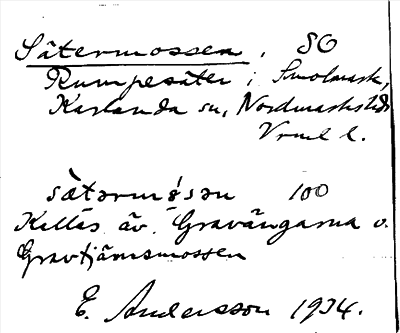 Sätermossen, SO
Rumpesäter i Smolmark,
Karlanda sn, Nordmarks hd
Vrml l.
sä̀tərmǿsən 100
Kallas äv. Gravängarna o.
Gravtjärnsmossen
E. Andersson 1934.